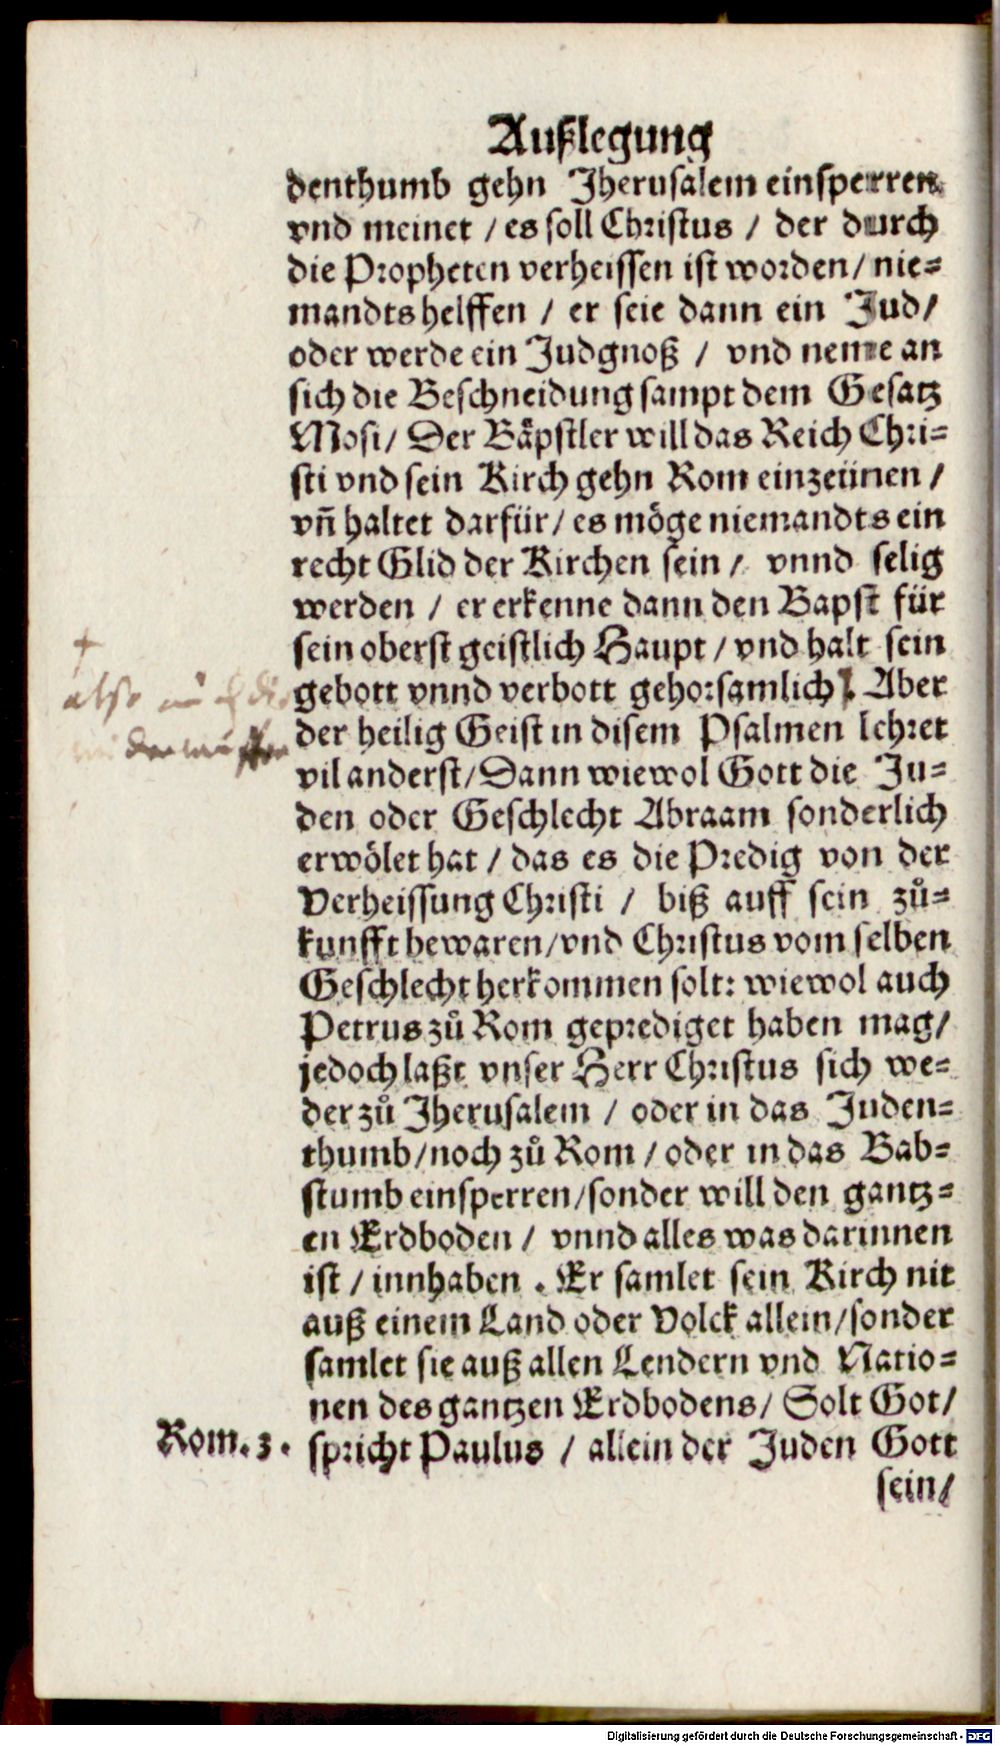 Außlegung
denthumb gehn Jherusalem einsperren
vnd meinet / es soll Christus / der durch
die Propheten verheissen ist worden / nie=
mandts helffen / er seie dann ein Jud /
oder werde ein Judgnoß / vnd neme an
sich die Beschneidung sampt dem Gesatz
Mosi / Der Bäpstler will das Reich Chri=
sti vnd sein Kirch gehn Rom einzeünen /
vn̄ haltet darfür / es möge niemandts ein
recht Glid der Kirchen sein / vnnd selig
werden / er erkenne dann den Bapst für
sein oberst geistlich Haupt / vnd halt sein
gebott vnnd verbott gehorsamlich. Aber
der heilig Geist in disem Psalmen lehret
vil anderst / Dann wiewol Gott die Ju=
den oder Geschlecht Abraam sonderlich
erwölet hat / das es die Predig von der
Verheissung Christi / biß auff sein zů=
kunfft bewaren / vnd Christus vom selben
Geschlecht herkommen solt: wiewol auch
Petrus zů Rom geprediget haben mag /
jedoch laßt vnser Herr Christus sich we=
der zů Jherusalem / oder in das Juden=
thumb / noch zů Rom / oder in das Bab=
stumb einsperren / sonder will den gantz=
en Erdboden / vnnd alles was darinnen
ist / innhaben. Er samlet sein Kirch nit
auß einem Land oder Volck allein / sonder
samlet sie auß allen Lendern vnd Natio=
nen des gantzen Erdbodens / Solt Got /
Rom. 3. spricht Paulus / allein der Juden Gott
sein /
also
Digitalisierung gefördert durch die Deutsche Forschungsgemeinschaft - DFG